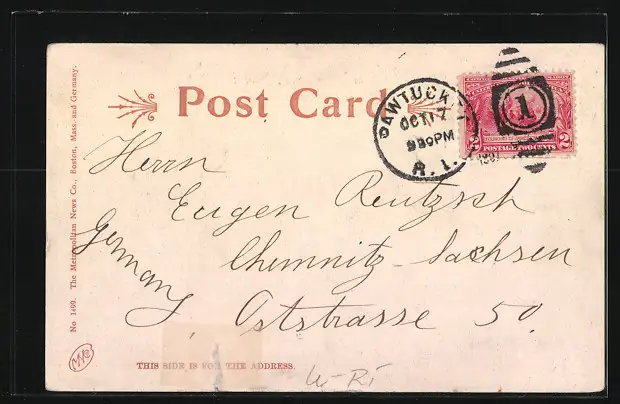 Post Card
PAWTUCKET
OCT 17
930PM
R. I.
1
2 2
POSTAGE TWO CENTS
Herrn
Eugen Reutzsch
Germany
Chemnitz-Sachsen
Oststrasse 50.
No 1499. The Metropolitan News Co., Boston, Mass. and Germany.
THIS SIDE IS FOR THE ADDRESS.
W-RI